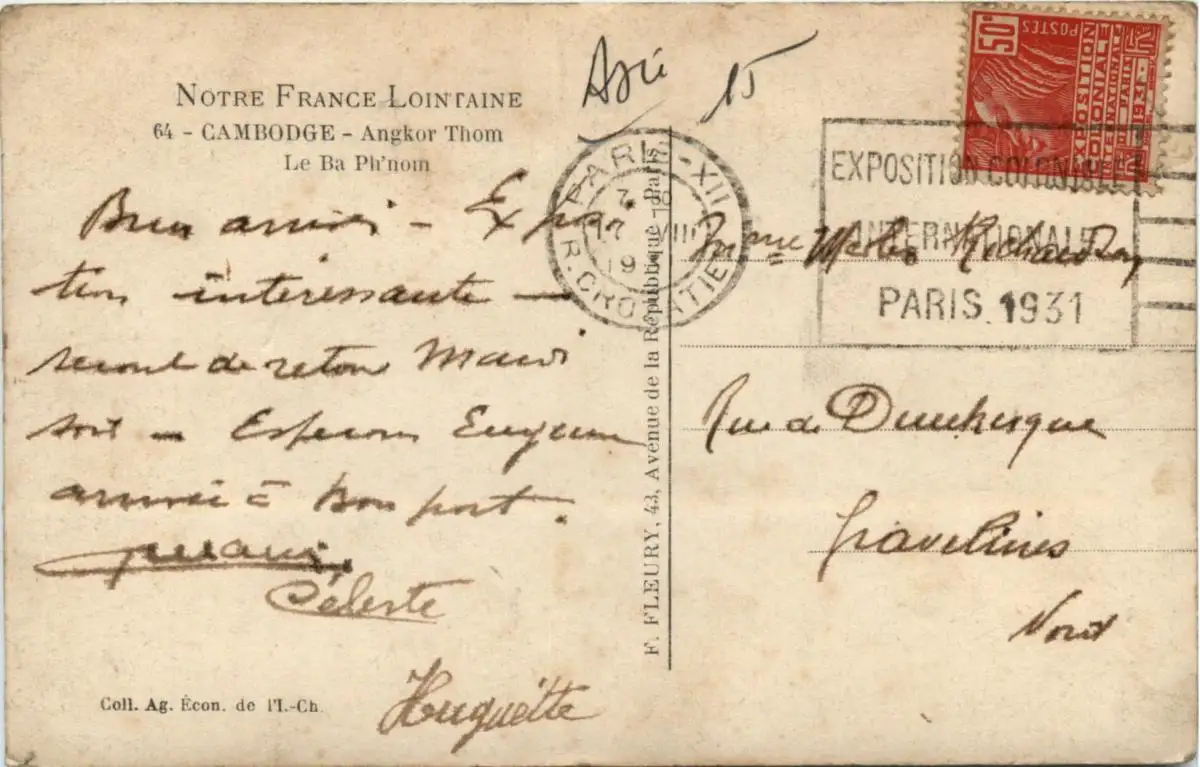 Asie 15
NOTRE FRANCE LOINTAINE
64 - CAMBODGE - Angkor Thom
Le Ba Ph'nom
Bien arrivés - Exposi
tion intéressante -
seront de retour Mardi
soir - Esperons
arrivée à bon port.
Céleste
Huguette
Coll. Ag. Écon. de l'I.-Ch
F. FLEURY, 43, Avenue de la République - Paris
PARIS-XII
R. CROZATIER
7 30
17 VIII
EXPOSITION COLONIALE
INTERNATIONALE
PARIS 1931
50c
POSTES
EXPOSITION
COLONIALE
INTERNATIONALE
PARIS
1931
Mme
Rue de Dunkerque
Gravelines
Nord